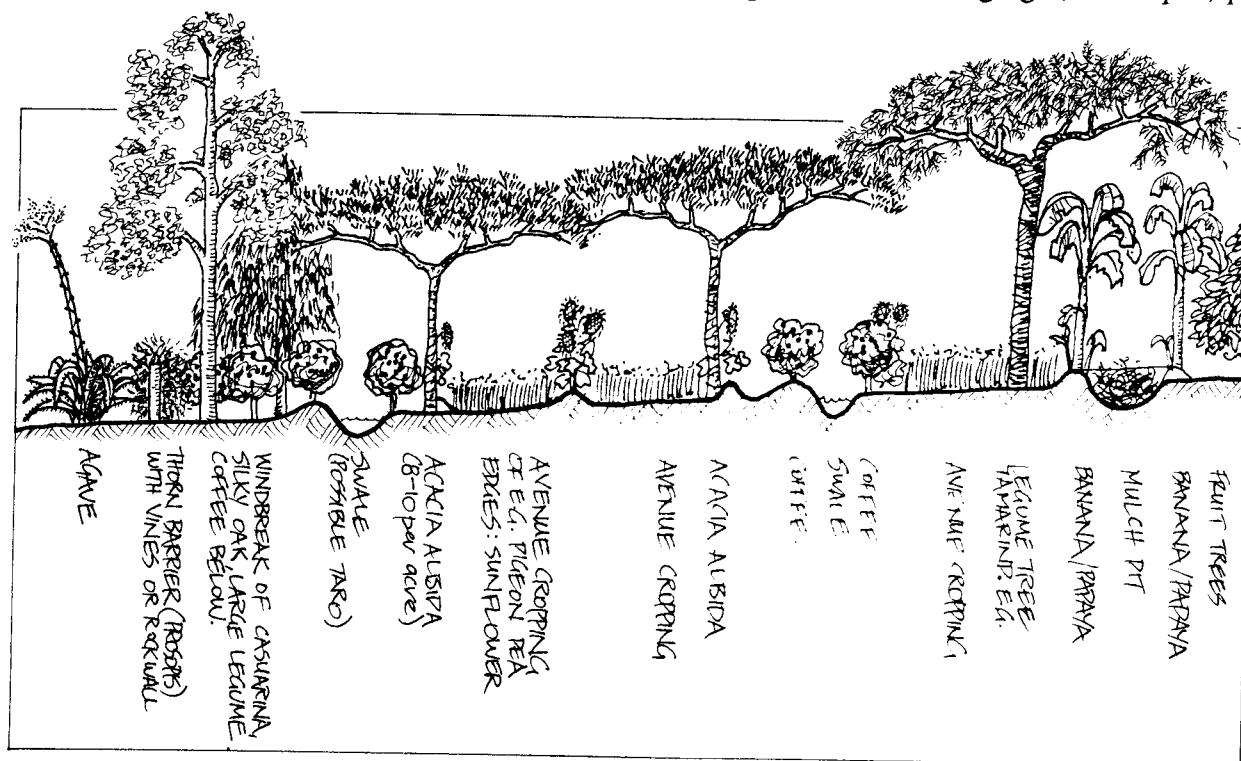 AGAVE
THORN BARRIER (PROSOPIS)
WITH VINES OR ROCKWALL
WINDBREAK OF CASUARINA,
SILKY OAK, LARGE LEGUME
COFFEE BELOW.
SWALE
(POSSIBLE TARO)
ACACIA ALBIDA
(8-10 per acre)
AVENUE CROPPING
OF E.G. PIGEON PEA
EDGES: SUNFLOWER
AVENUE CROPPING
ACACIA ALBIDA
COFFEE.
SWALE
COFFEE
AVENUE CROPPING
LEGUME TREE
TAMARIND. E.G.
BANANA/PAPAYA
MULCH PIT
BANANA/PAPAYA
FRUIT TREES